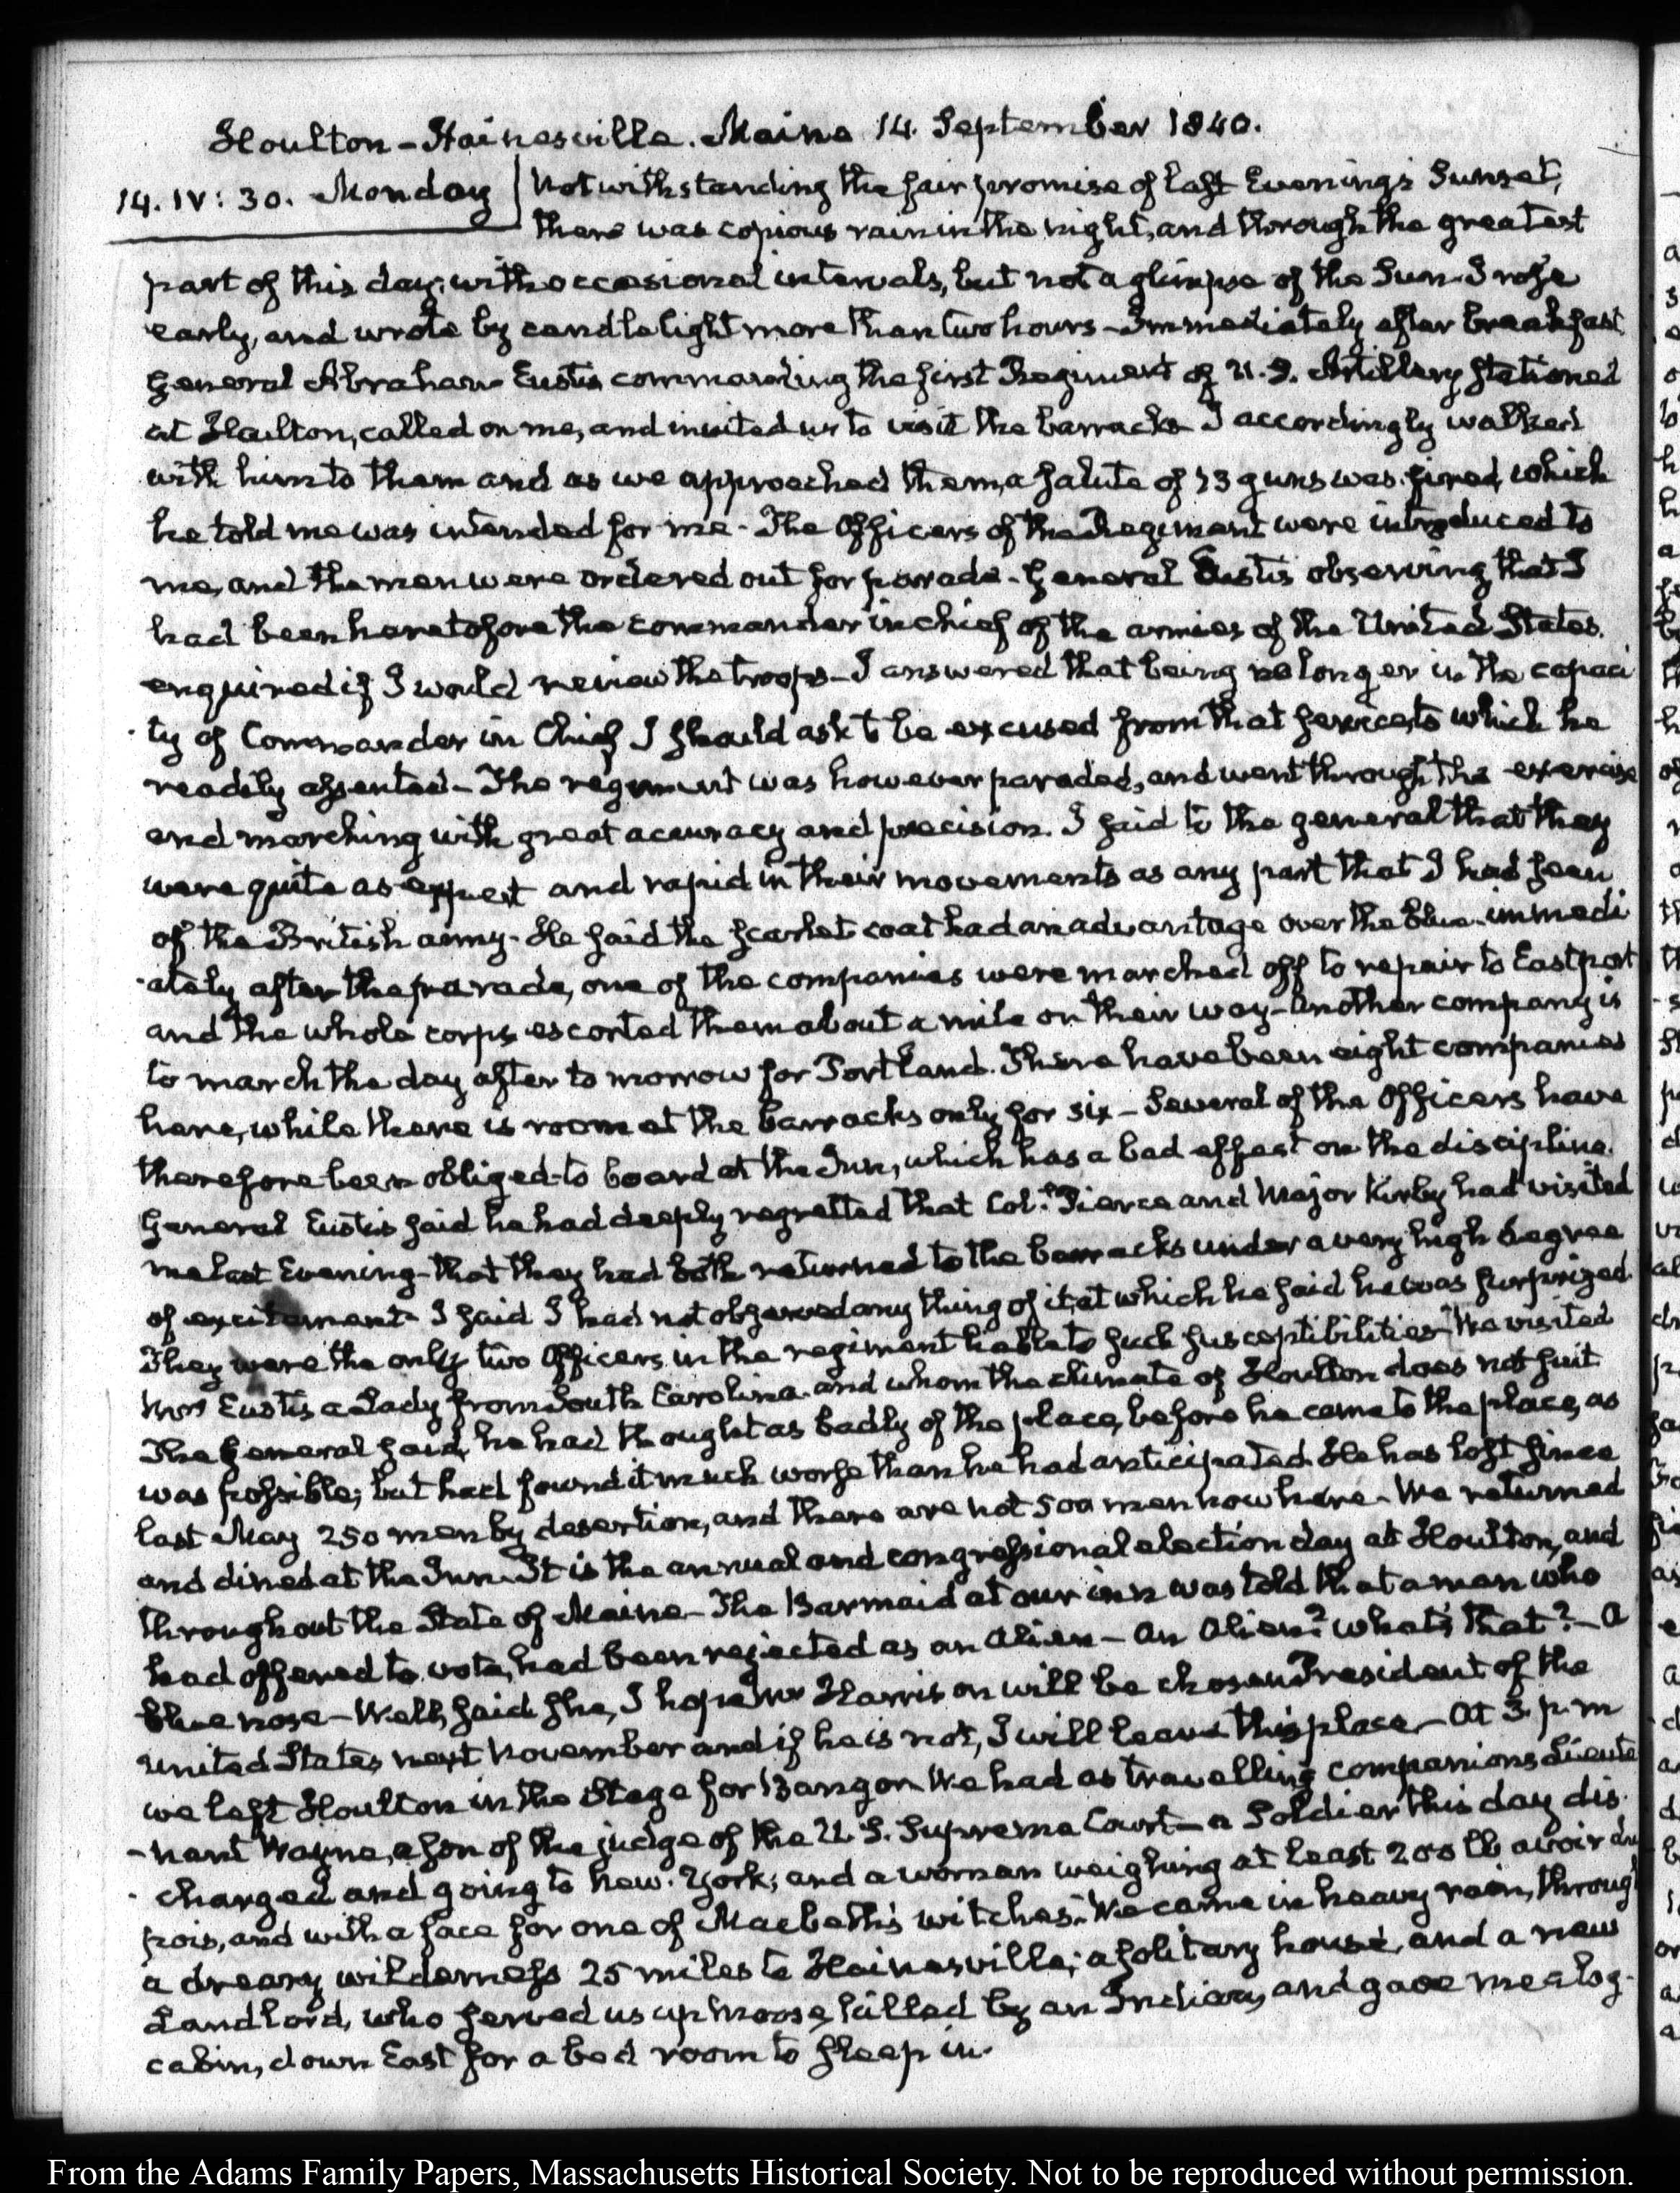 Houlton-Hainesville. Maine 14. September 1840.
14. IV: 30. Monday Notwithstanding the fair promise of last Evening's Sunset,
there was copious rain in the night, and through the greatest
part of this day; with occasional intervals, but not a glimpse of the Sun. I rose
early, and wrote by candle light more than two hours - Immediately after breakfast
General Abraham Eustis commanding the first Regiment of U.S. Artillery stationed
at Houlton, called on me, and invited us to visit the barracks I accordingly walked
with him to them and as we approached them, a salute of 23 guns was fired, which
he told me was intended for me - The Officers of the Regiment were introduced to
me, and the men were ordered out for parade. General Eustis observing that I
had been heretofore the commander in chief of the armies of the United States,
enquired if I would review the troops - I answered that being no longer in the capaci
-ty of Commander in Chief I should ask to be excused from that service, to which he
readily assented - The regiment was however paraded, and went through the exercise
and marching with great accuracy and precision. I said to the general that they
were quite as expert and rapid in their movements as any part that I had seen
of the British army. He said the scarlet coat had an advantage over the blue. immedi
-ately after the parade, one of the companies were marched off to repair to Eastport
and the whole corps escorted them about a mile on their way - another company is
to march the day after to morrow for Portland. There have been eight companies
here, while there is room at the barracks only for six - Several of the Officers have
therefore been obliged to board at the Inn, which has a bad effect on the discipline.
General Eustis said he had deeply regretted that Colt. Pierce and Major Kirby had visited
me last Evening - that they had both returned to the barracks under a very high degree
of excitement - I said I had not observed any thing of it, at which he said he was surprized
They were the only two Officers in the regiment liable to such susceptibilities - We visited
Mrs Eustis a Lady from South Carolina and whom the climate of Houlton does not suit
The General said, he had thought as badly of the place, before he came to the place, as
was possible; but had found it much worse than he had anticipated. He has lost since
last May 250 men by desertion, and there are not 500 men now here - We returned
and dined at the Inn. It is the annual and congressional election day at Houlton, and
throughout the State of Maine - The Barmaid at our inn was told that a man who
had offered to vote, had been rejected as an Alien - An Alien? what's that? - A
blue nose - Well, said she, I hope Mr Harrison will be chosen President of the
United States next November and if he is not, I will leave this place - At 3. p.m
we left Houlton in the Stage for Bangor We had as travelling companions Lieute
-nant Wayne, a son of the judge of the U.S. Supreme Court - a Soldier this day dis
-charged and going to New-York; and a woman weighing at least 200 lb avoirdu
pois, and with a face for one of Macbeth's witches. We came in heavy rain, through
a dreary wilderness 25 miles to Hainesville; a solitary house, and a new
Landlord, who served us up Moose, killed by an Indian, and gave me a log-
cabin, down East for a bed room to sleep in.
From the Adams Family Papers, Massachusetts Historical Society. Not to be reproduced without permission.